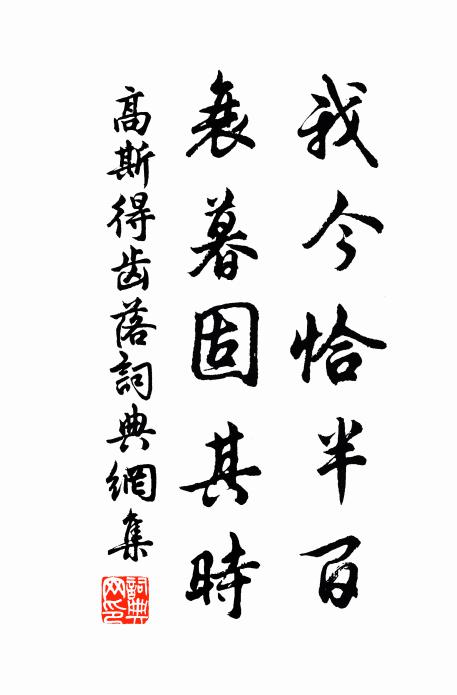 我今恰半百
衰暮固其時
高斯得齒落詞典網集
詞典網印